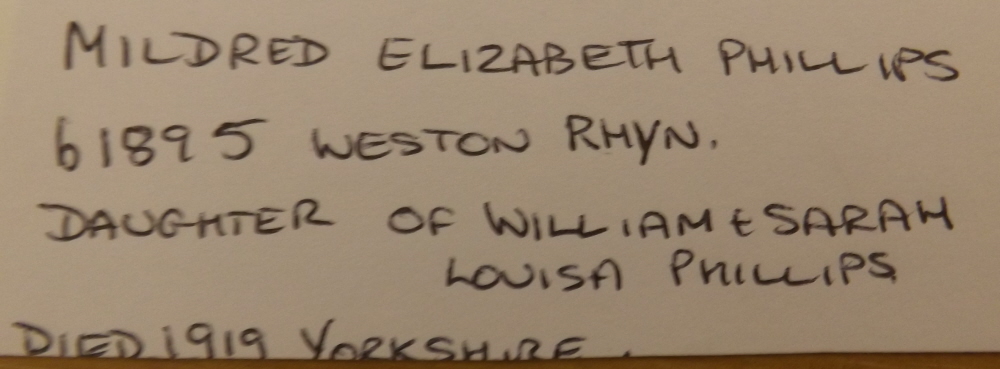 MILDRED ELIZABETH PHILLIPS
b 1895 WESTON RHYN.
DAUGHTER OF WILLIAM & SARAH
LOUISA PHILLIPS
DIED 1919 YORKSHIRE.